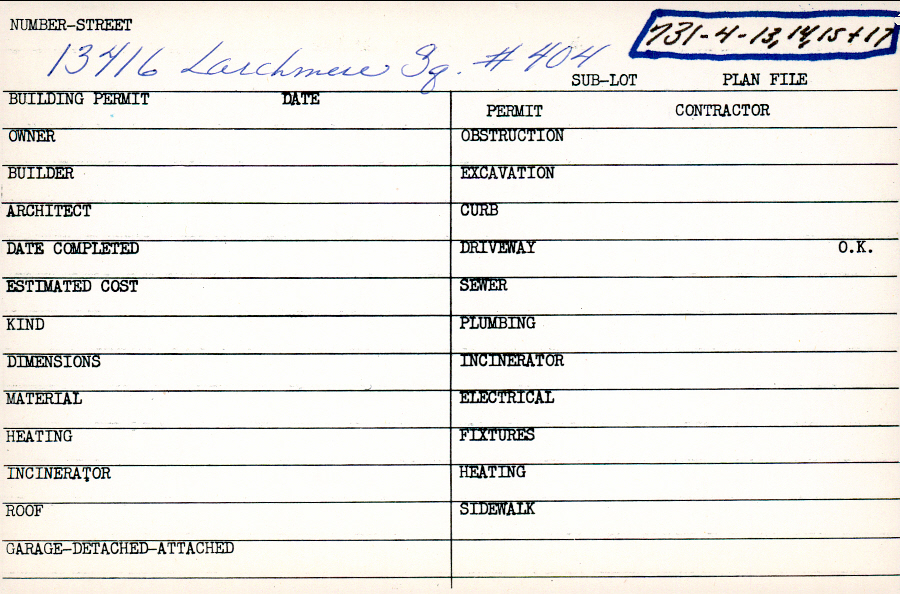 NUMBER-STREET
731-4-13,14,15+17
13416 Larchmere Sq. #404
SUB-LOT PLAN FILE
BUILDING PERMIT DATE
PERMIT CONTRACTOR
OWNER
OBSTRUCTION
BUILDER
EXCAVATION
ARCHITECT
CURB
DATE COMPLETED
DRIVEWAY O.K.
ESTIMATED COST
SEWER
KIND
PLUMBING
DIMENSIONS
INCINERATOR
MATERIAL
ELECTRICAL
HEATING
FIXTURES
INCINERATOR
HEATING
ROOF
SIDEWALK
GARAGE-DETACHED-ATTACHED